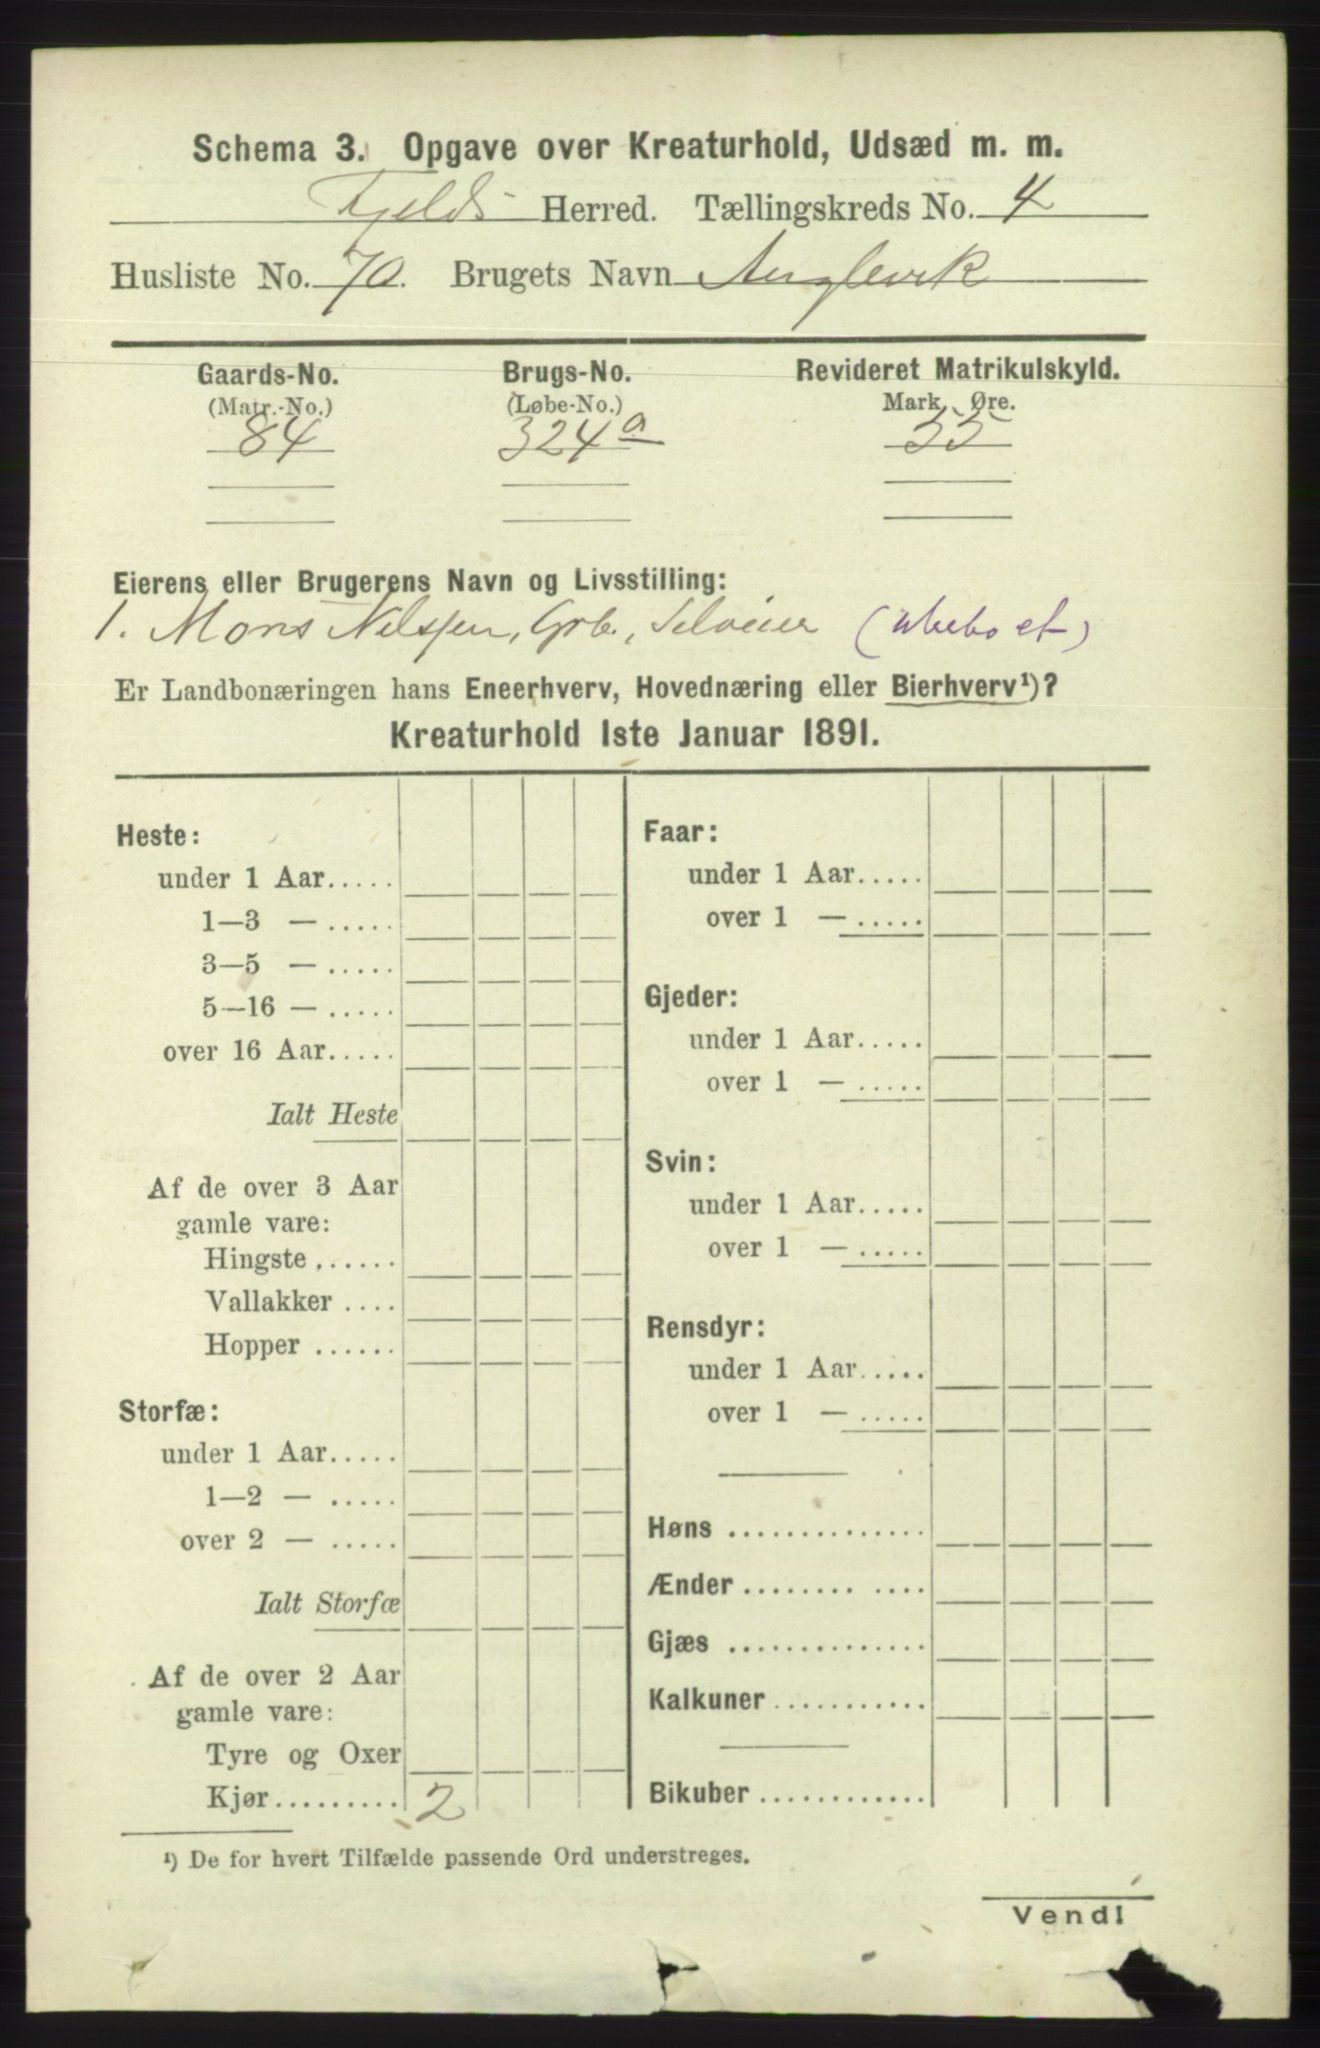 Schema 3. Opgave over Kreaturhold, Udsæd m. m.
Fjelds Herred. Tællingskreds No. 4
Husliste No. 70. Brugets Navn Anglevik
Gaards-No. Brugs-No. Revideret Matrikulskyld.
(Matr.-No.) (Løbe-No.) Mark Øre.
84 324 a 55
Eierens eller Brugerens Navn og Livsstilling:
1. Mons Nilssen, Grb., Selveier (ubeboet)
Er Landbonæringen hans Eneerhverv, Hovednæring eller Bierhverv¹)?
Kreaturhold 1ste Januar 1891.
Heste:
under 1 Aar.....
1—3 — .....
3—5 — .....
5—16 — .....
over 16 Aar.....
Ialt Heste
Af de over 3 Aar
gamle vare:
Hingste ......
Vallakker ....
Hopper ......
Storfæ:
under 1 Aar.....
1—2 — .....
over 2 — .....
Ialt Storfæ
Af de over 2 Aar
gamle vare:
Tyre og Oxer
Kjør......... 2
Faar:
under 1 Aar.....
over 1 — .....
Gjeder:
under 1 Aar.....
over 1 — .....
Svin:
under 1 Aar.....
over 1 — .....
Rensdyr:
under 1 Aar.....
over 1 — .....
Høns ..............
Ænder ........ ....
Gjæs ..............
Kalkuner ...........
Bikuber ............
¹) De for hvert Tilfælde passende Ord understreges.
Vend!